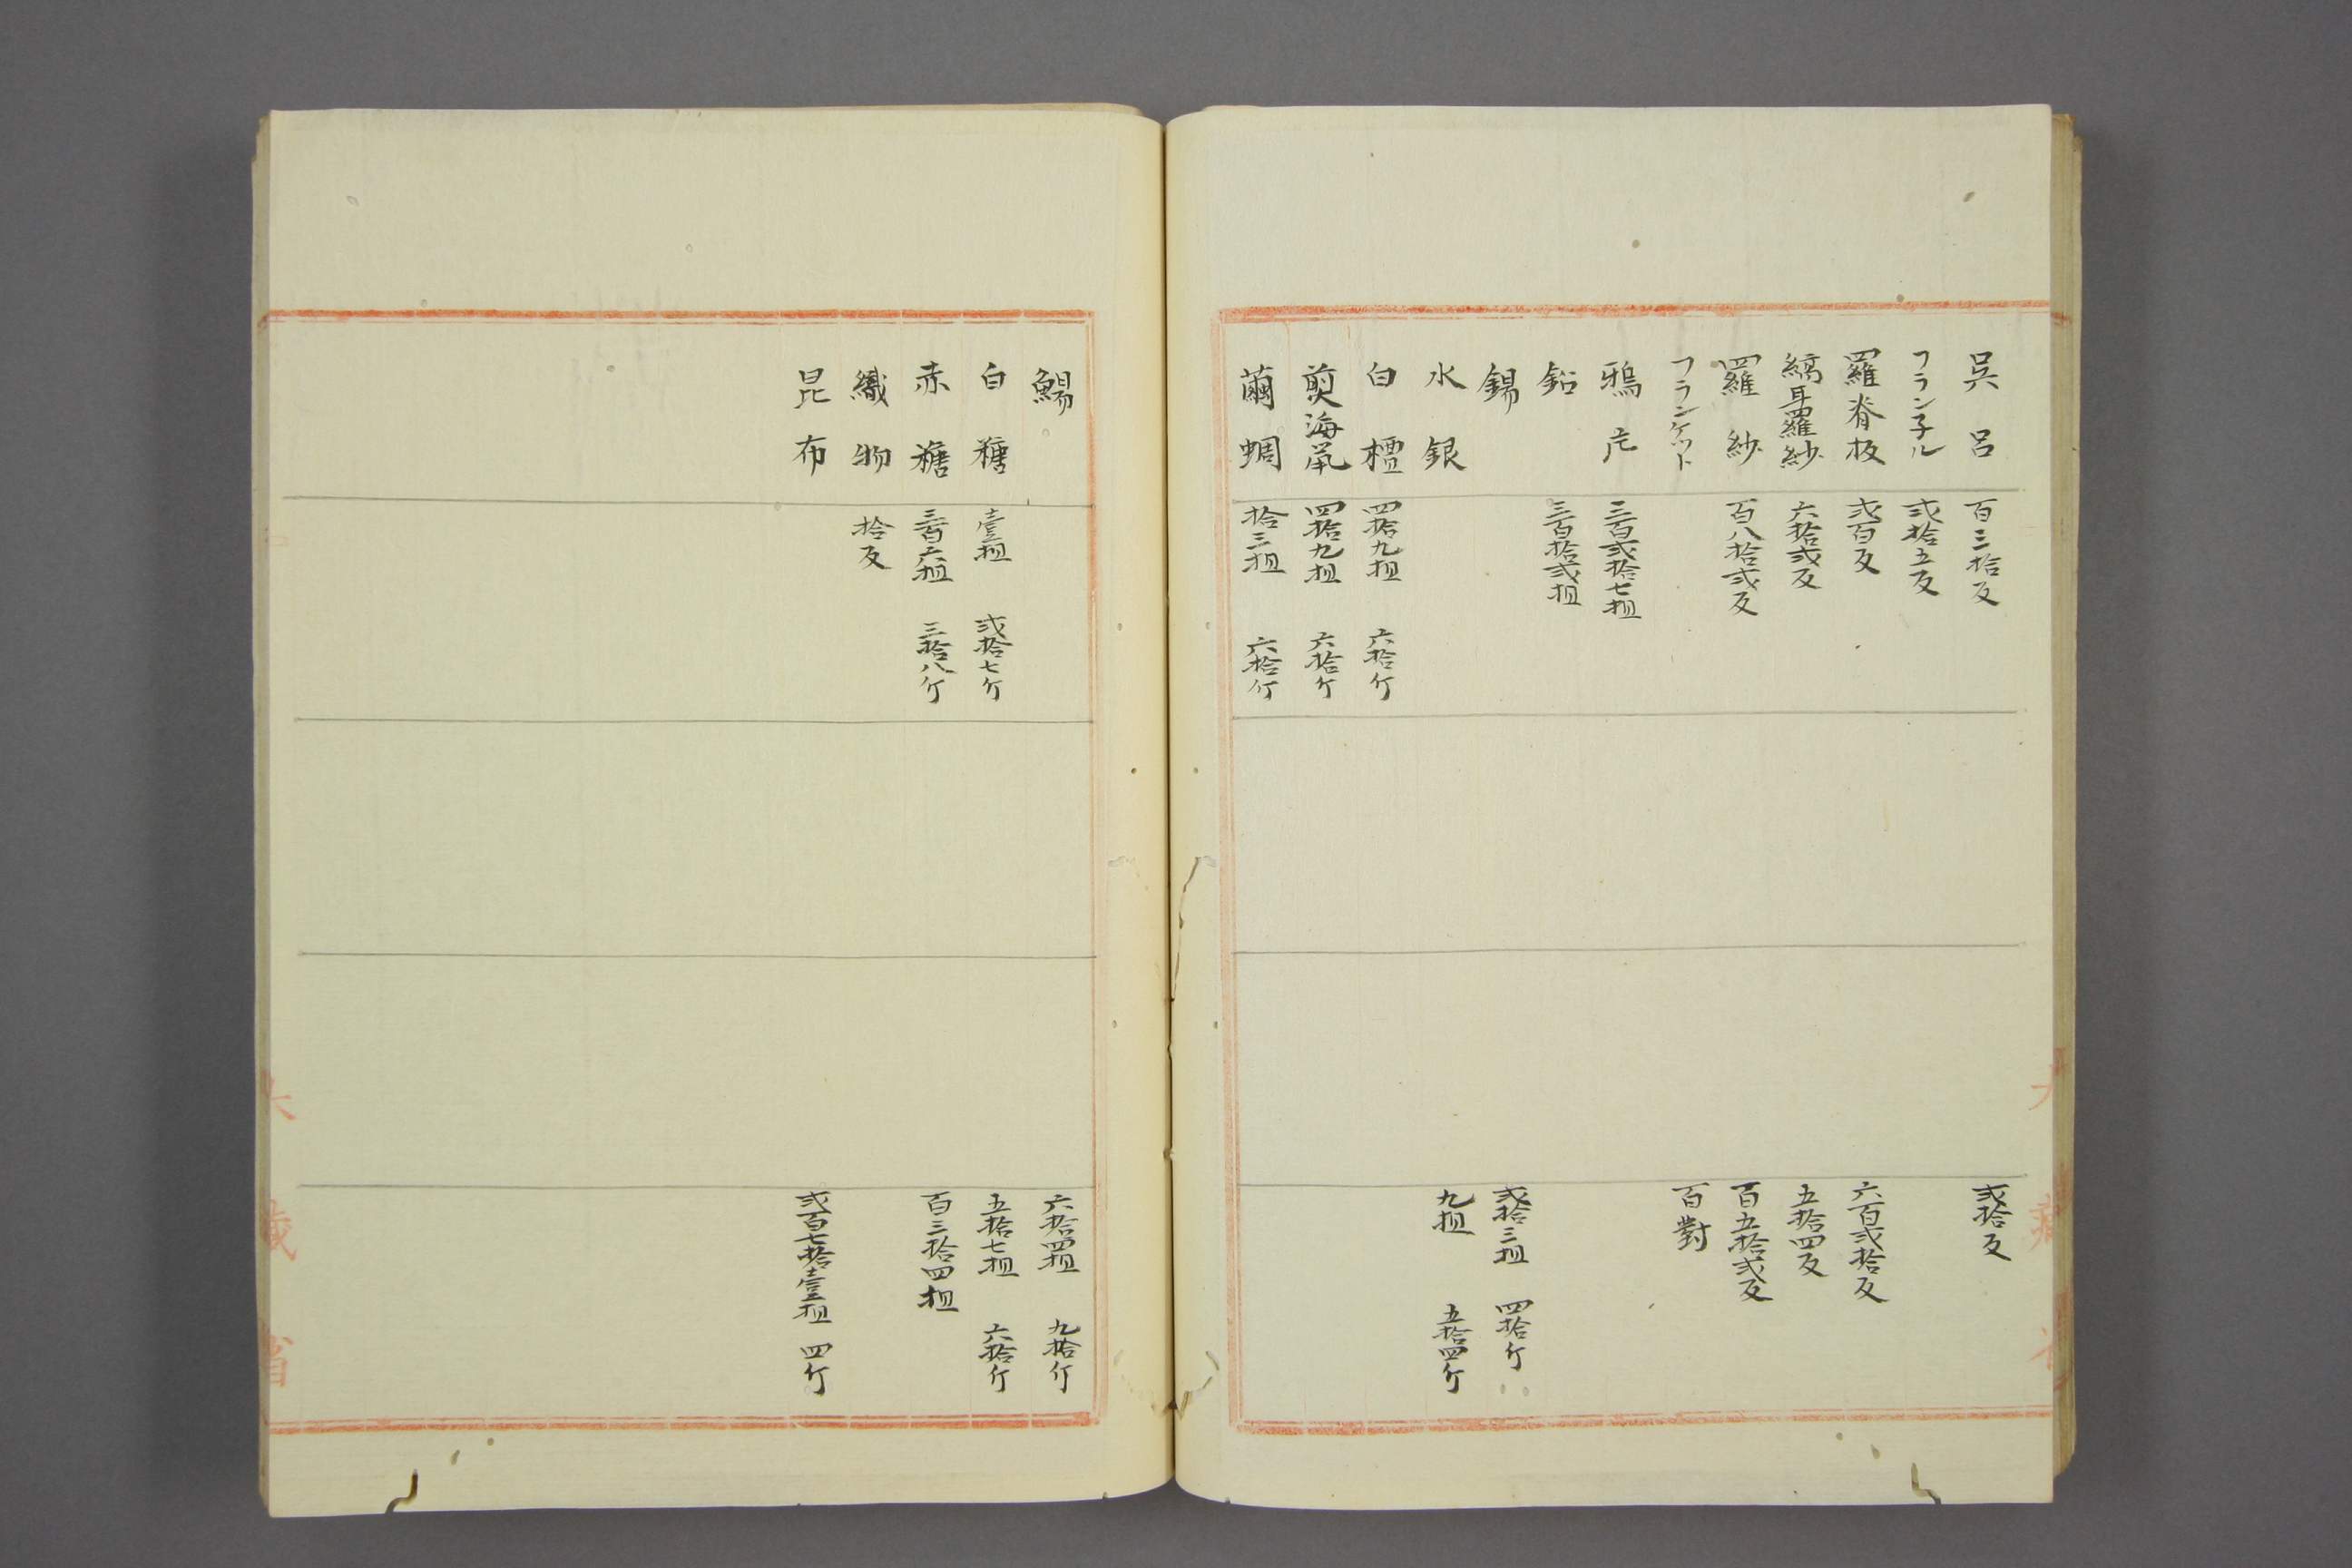 呉呂 百三拾反 弐拾反
フラン子ル 弐拾五反
羅脊板 弐百反 六百弐拾反
縞耳羅紗 六拾弐反 五拾四反
羅紗 百八拾弐反 百五拾弐反
フランケット 百對
鴉片 三百弐拾七担
鉛 三百拾弐担
錫 弐拾三担 四拾斤
水銀 九担 五拾四斤
白檀 四拾九担 六拾斤
煎海鼠 四拾九担 六拾斤
繭蜩 拾三担 六拾斤
大藏省
鯣 六拾四担 九拾斤
白糖 壹担 弐拾七斤 五拾七担 六拾斤
赤糖 三百六担 三拾八斤 百三拾四担
織物 拾反
昆布 弐百七拾壹担 四斤
大藏省